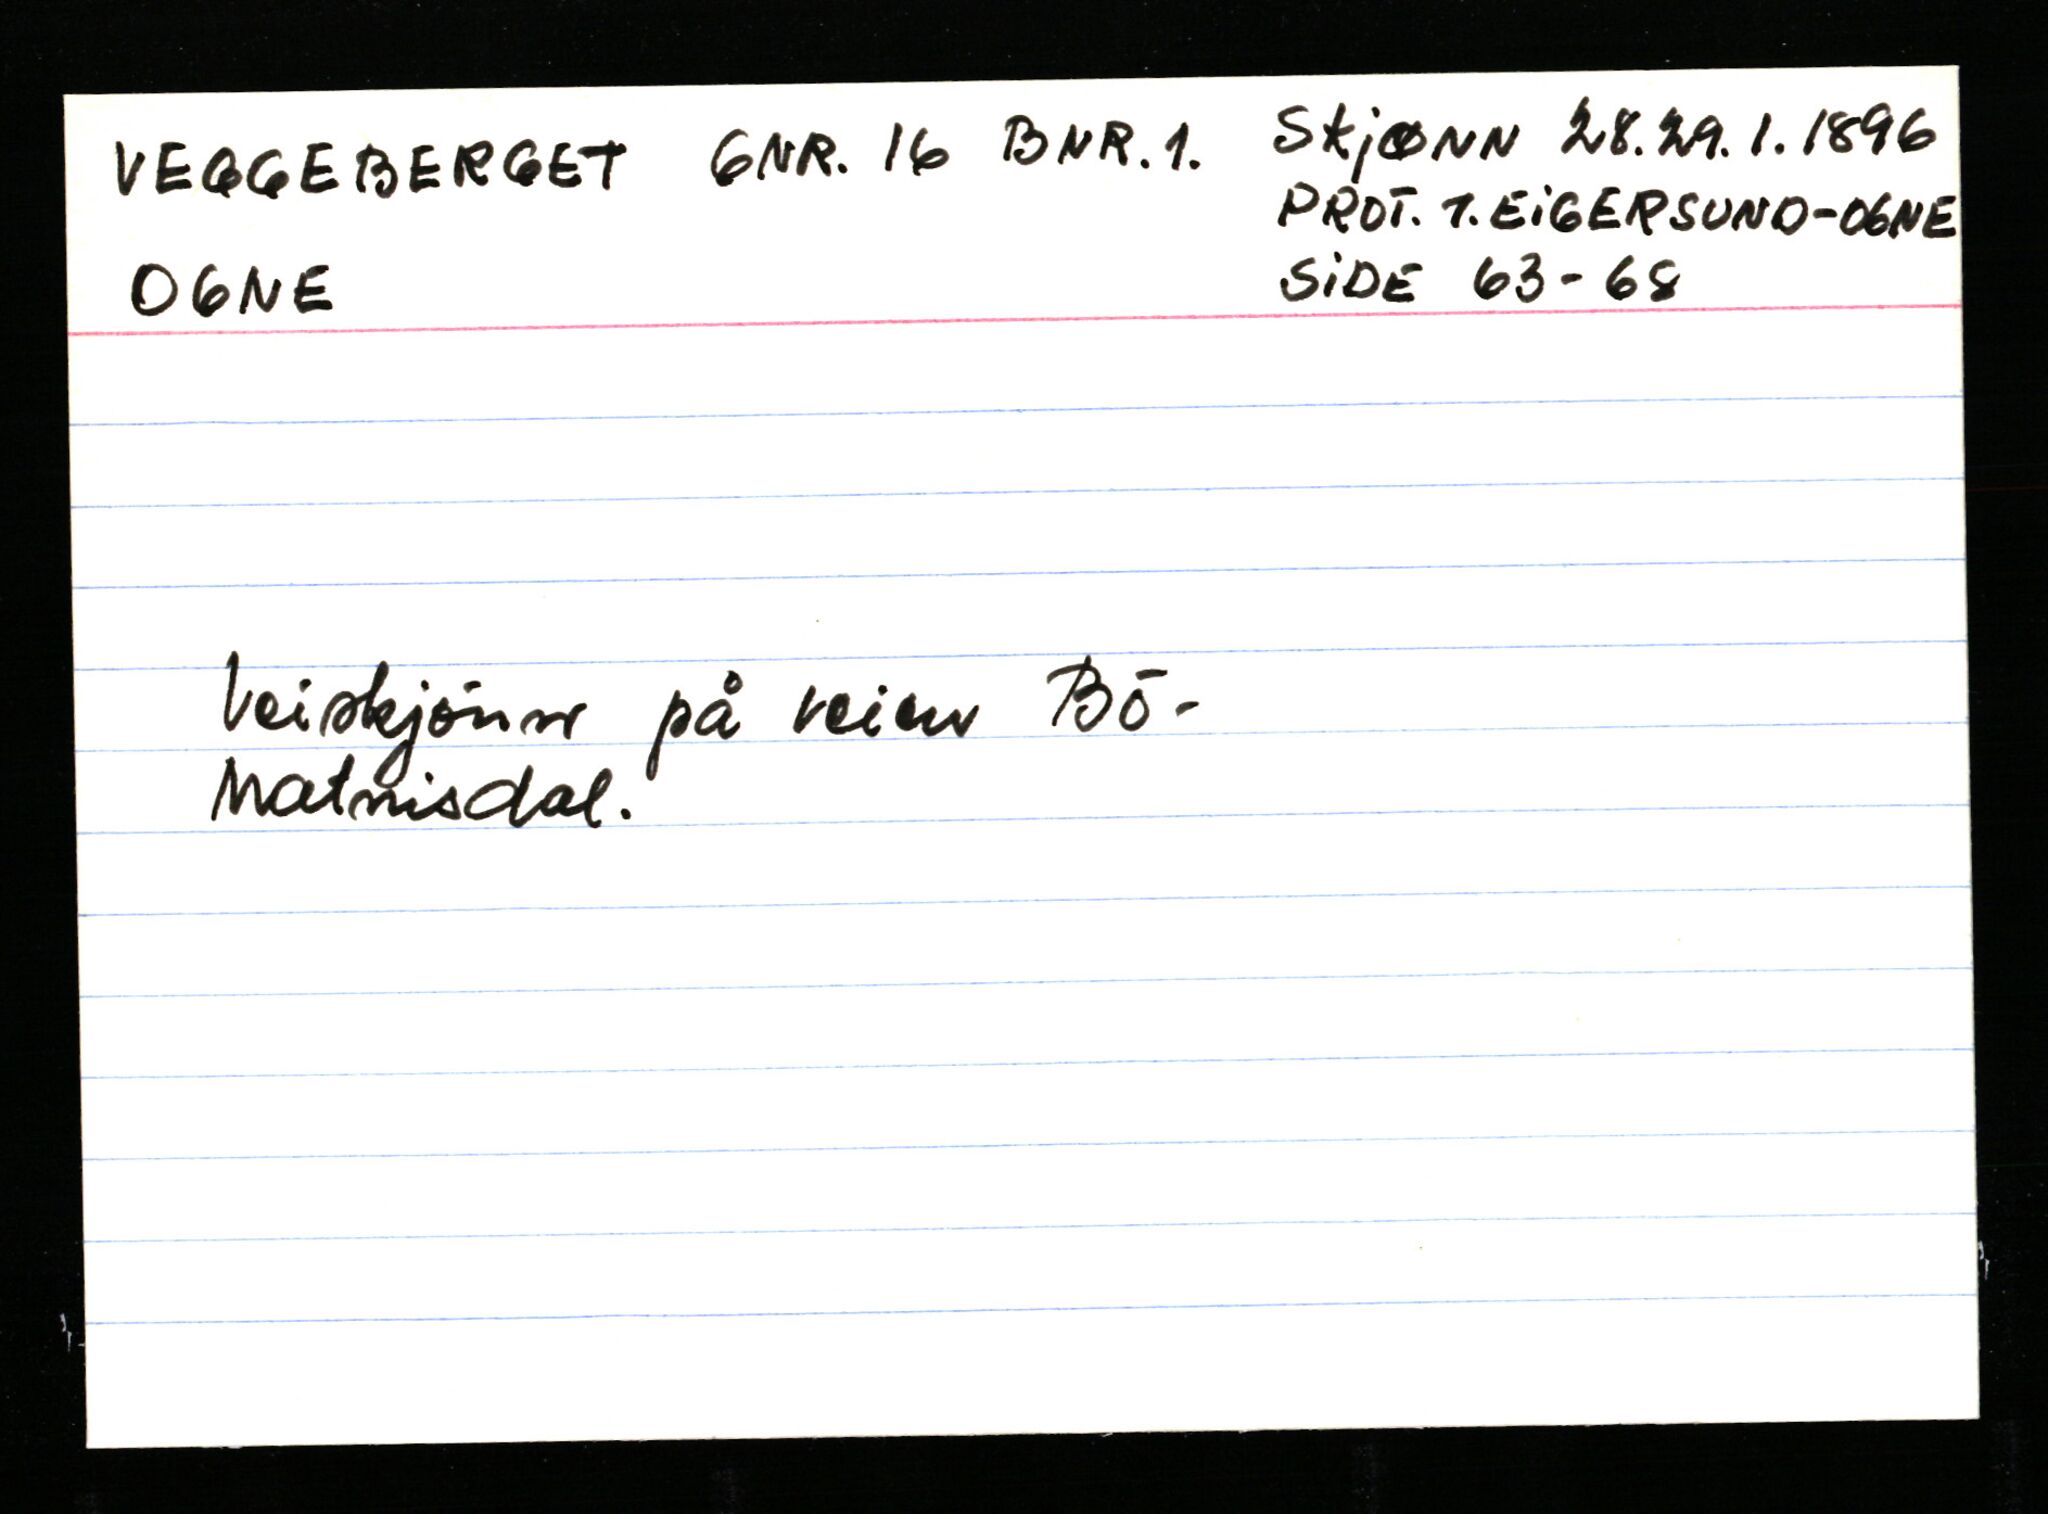 VEGGEBERGET GNR. 16 BNR. 1. Skjønn 28.29.1.1896
PROT. 1. EiGERSUND-OGNE
OGNE SiDE 63-68
Veiskjönn på veien Bö-
Matnisdal.